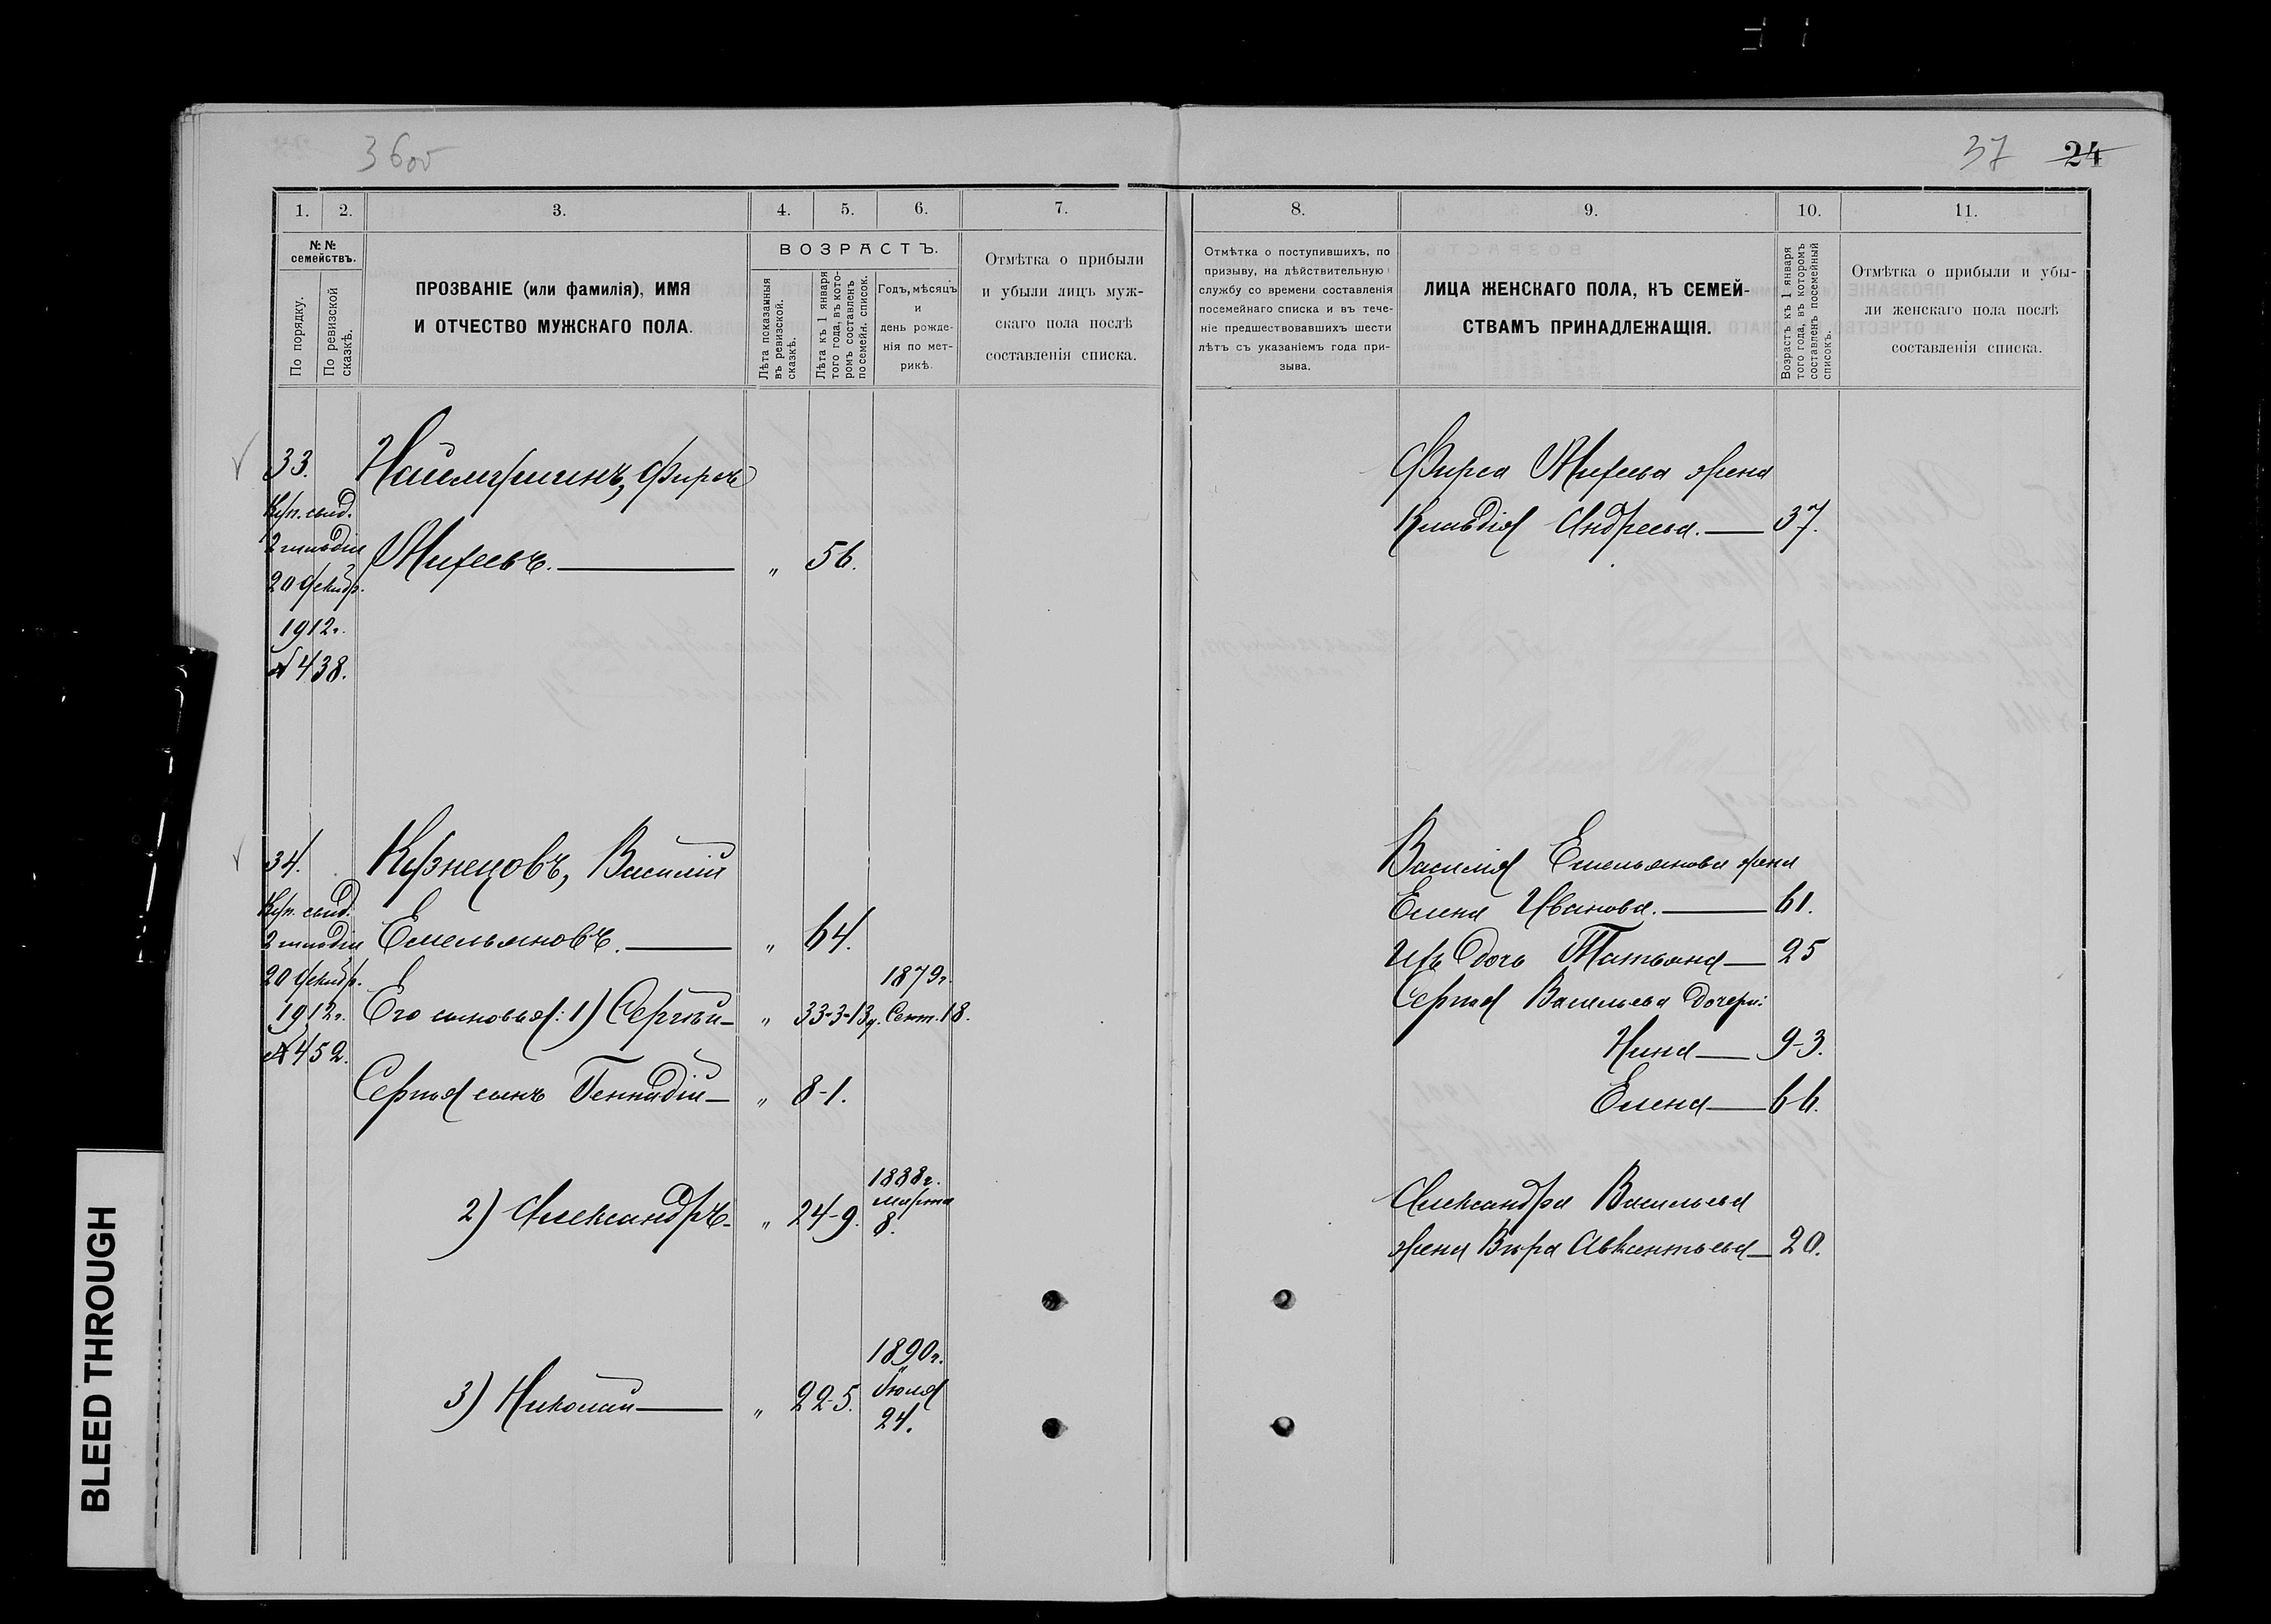 36об
37 24
1. 2. 3. 4. 5. 6. 7.
№№ семействъ.
По порядку.
По ревизской сказкѣ.
ПРОЗВАНІЕ (или фамилія), ИМЯ
И ОТЧЕСТВО МУЖСКАГО ПОЛА.
ВОЗРАСТЪ.
Лѣта показанныя въ ревизской сказкѣ.
Лѣта къ 1 января того года, въ которомъ составленъ посемейн. список.
Годъ, мѣсяцъ
и
день рожде-
нія по мет-
рикѣ.
Отмѣтка о прибыли
и убыли лицъ муж-
скаго пола послѣ
составленія списка.
33.
Куп. свид.
2 гильдіи
20 Декабр.
1912г.
№ 438.
Фирсъ
Михеевъ. — " 56.
34.
Куп. свид.
2 гильдіи
20 Декабр.
1912г.
№ 452.
Кузнецовъ, Василій
Емельяновъ. — " 64.
Его сыновья: 1) Сергѣй — " 33-3-13д. 1879г. Сент. 18.
Сергѣя сынъ Геннадій — " 8-1.
2) Александръ — " 24-9. 1888г. марта 8.
3) Николай — " 22-5. 1890г. Іюля 24.
8. 9. 10. 11.
Отмѣтка о поступившихъ, по
призыву, на дѣйствительную
службу со времени составленія
посемейнаго списка и въ тече-
ніе предшествовавшихъ шести
лѣтъ съ указаніемъ года при-
зыва.
ЛИЦА ЖЕНСКАГО ПОЛА, КЪ СЕМЕЙ-
СТВАМЪ ПРИНАДЛЕЖАЩІЯ.
Возрастъ къ 1 января того года, въ которомъ составленъ посемейный списокъ.
Отмѣтка о прибыли и убы-
ли женскаго пола послѣ
составленія списка.
Фирса Михеева жена
Клавдія Андреева. — 37.
Василія Емельянова жена
Елена Иванова. — 61.
Ихъ дочь Татьяна — 25
Сергѣя Васильева дочери:
Нина — 9-3.
Елена — 6 6.
Александра Васильева
жена Вѣра Авксентьева — 20.
BLEED THROUGH